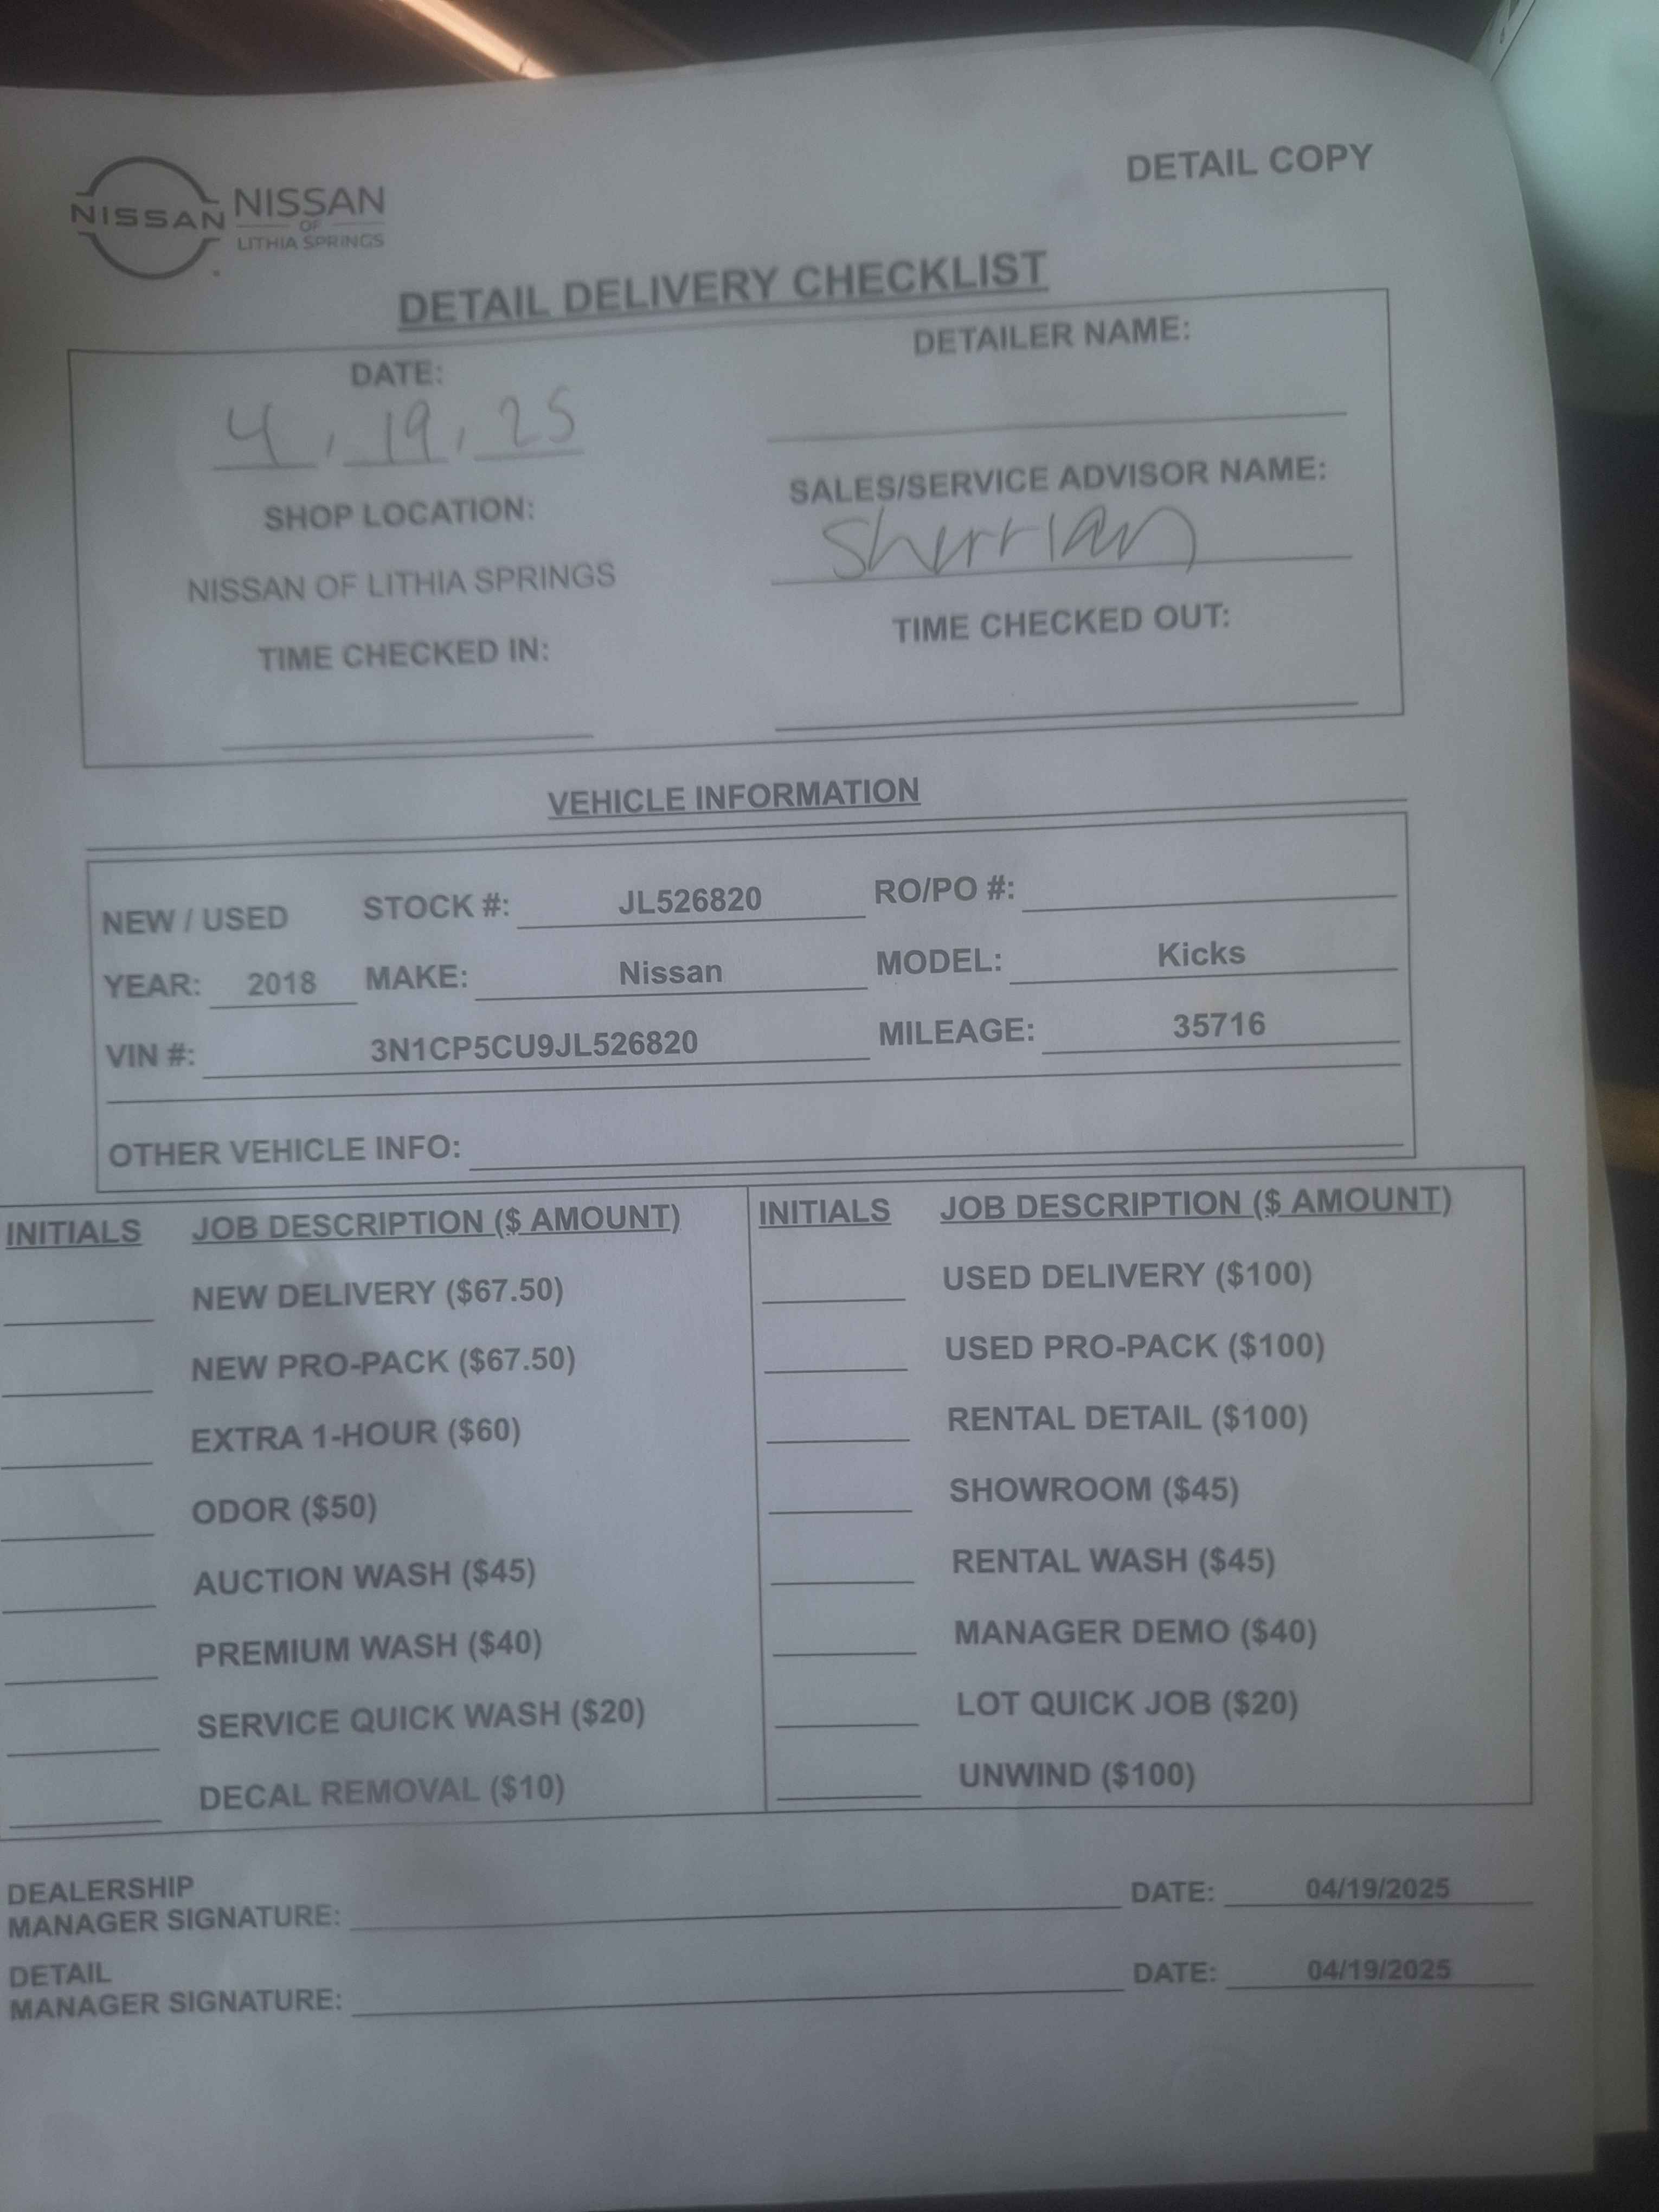 DETAIL COPY
NISSAN NISSAN
OF
LITHIA SPRINGS
DETAIL DELIVERY CHECKLIST
DATE:
4, 19, 25
DETAILER NAME:
SHOP LOCATION:
NISSAN OF LITHIA SPRINGS
SALES/SERVICE ADVISOR NAME:
Sherrian
TIME CHECKED IN:
TIME CHECKED OUT:
VEHICLE INFORMATION
NEW / USED STOCK #: JL526820 RO/PO #:
YEAR: 2018 MAKE: Nissan MODEL: Kicks
VIN #: 3N1CP5CU9JL526820 MILEAGE: 35716
OTHER VEHICLE INFO:
INITIALS JOB DESCRIPTION ($ AMOUNT)
NEW DELIVERY ($67.50)
NEW PRO-PACK ($67.50)
EXTRA 1-HOUR ($60)
ODOR ($50)
AUCTION WASH ($45)
PREMIUM WASH ($40)
SERVICE QUICK WASH ($20)
DECAL REMOVAL ($10)
INITIALS JOB DESCRIPTION ($ AMOUNT)
USED DELIVERY ($100)
USED PRO-PACK ($100)
RENTAL DETAIL ($100)
SHOWROOM ($45)
RENTAL WASH ($45)
MANAGER DEMO ($40)
LOT QUICK JOB ($20)
UNWIND ($100)
DEALERSHIP
MANAGER SIGNATURE: DATE: 04/19/2025
DETAIL
MANAGER SIGNATURE: DATE: 04/19/2025